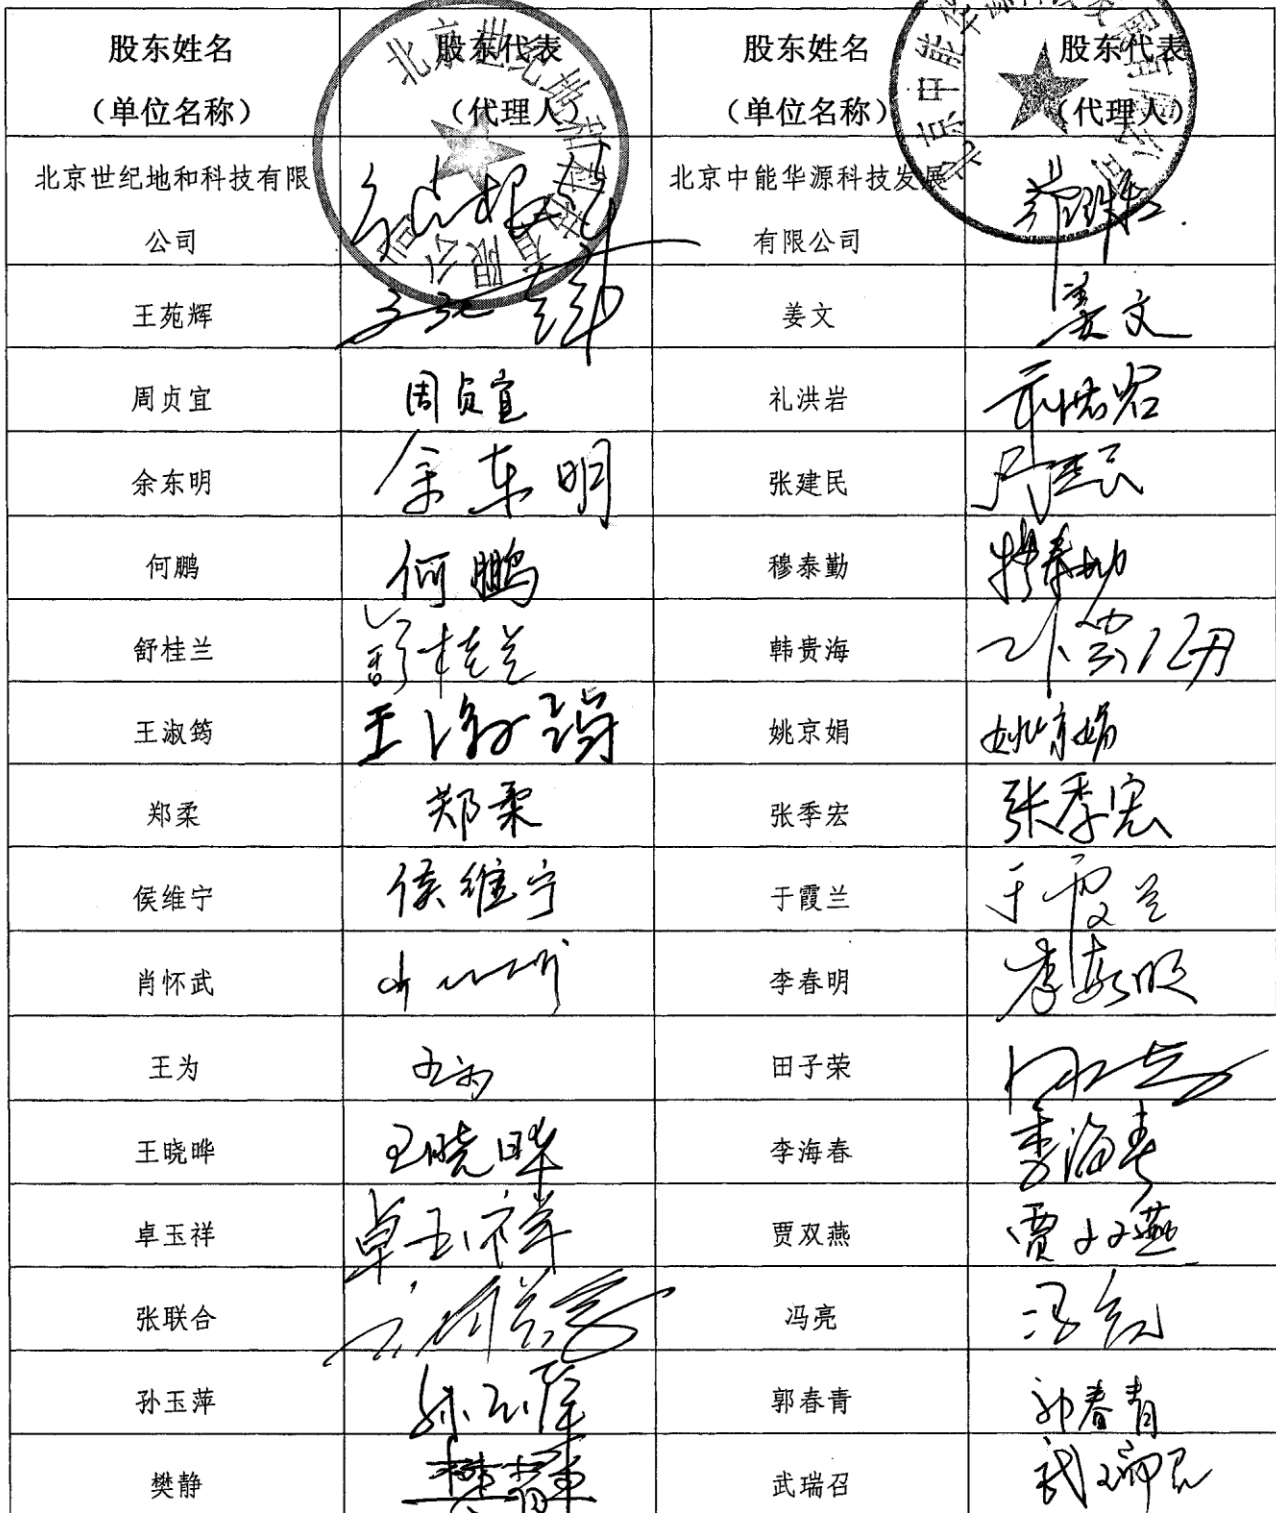 股东姓名 股东代表 股东姓名 股东代表
（单位名称） （代理人） （单位名称） （代理人）
北京世纪地和科技有限 北京中能华源科技发展
公司 有限公司
王苑辉 姜文 姜文
周贞宜 周贞宜 礼洪岩
余东明 余东明 张建民
何鹏 何鹏 穆泰勤
舒桂兰 舒桂兰 韩贵海
王淑筠 姚京娟 姚京娟
郑柔 郑柔 张季宏 张季宏
侯维宁 侯维宁 于霞兰 于霞兰
肖怀武 李春明 李春明
王为 王为 田子荣
王晓晔 王晓晔 李海春 李海春
卓玉祥 卓玉祥 贾双燕 贾双燕
张联合 冯亮 冯亮
孙玉萍 孙玉萍 郭春青 郭春青
樊静 樊静 武瑞召 武瑞召